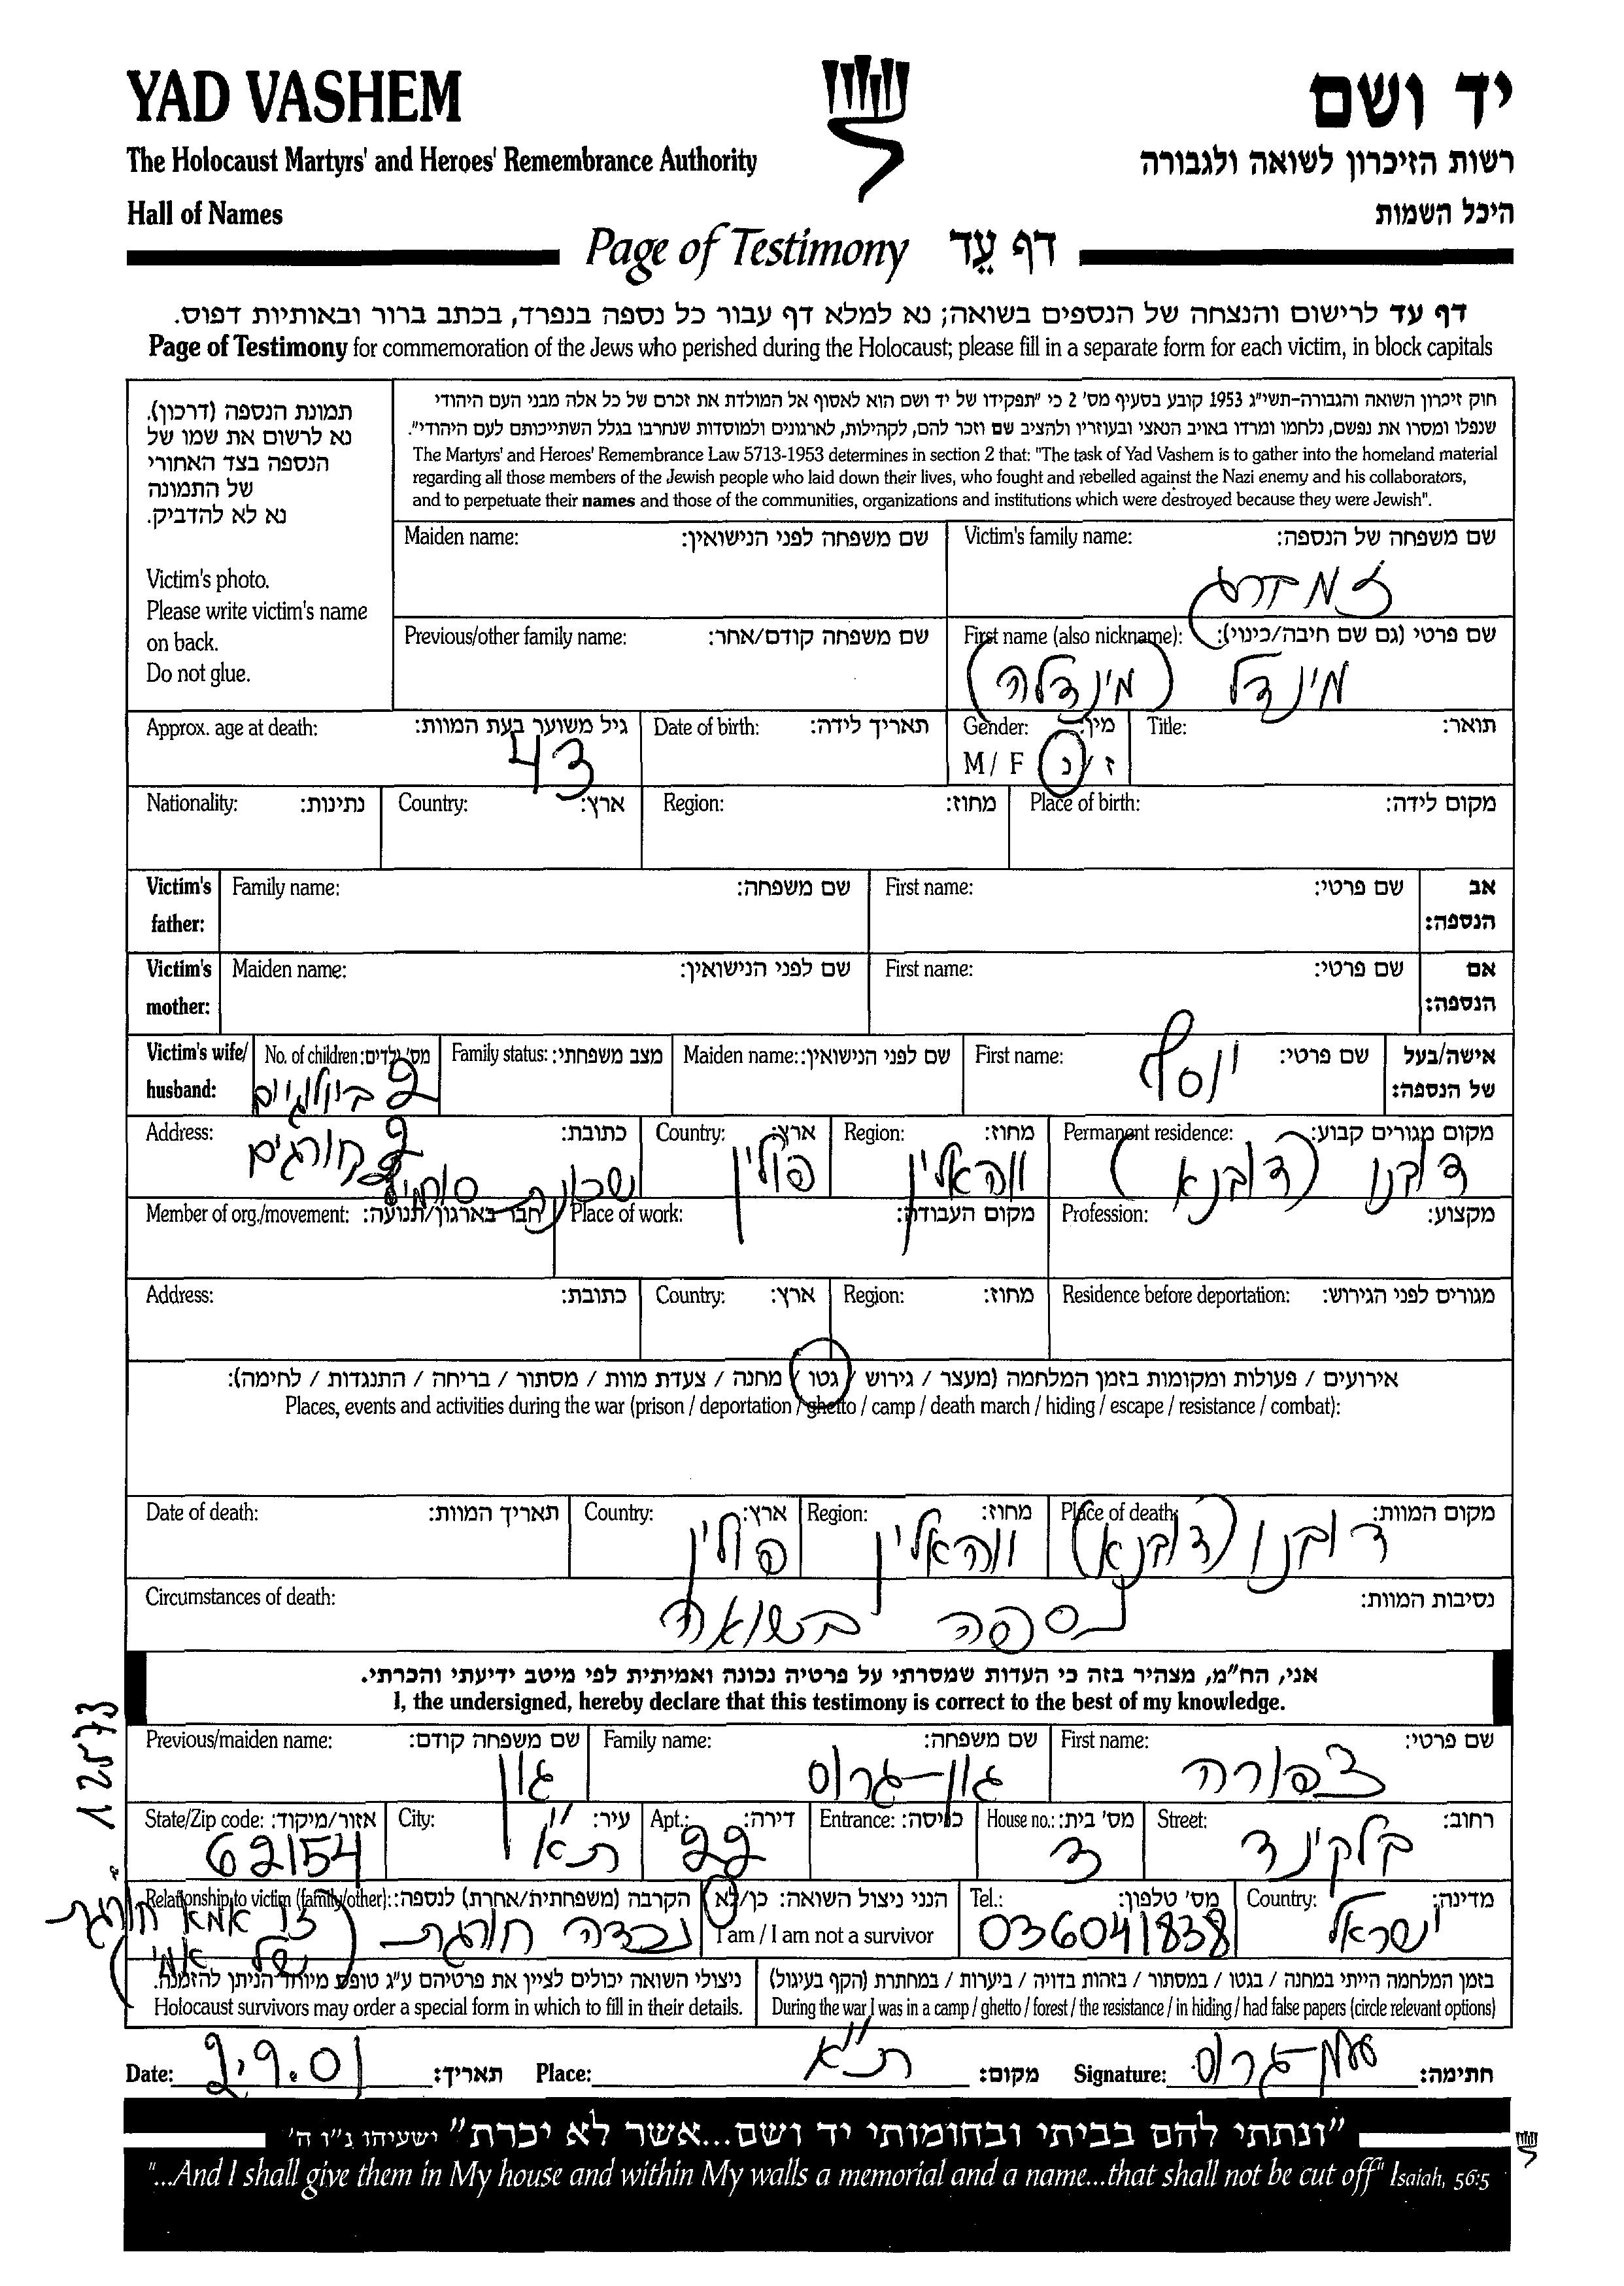 YAD VASHEM
יד ושם
The Holocaust Martyrs' and Heroes' Remembrance Authority
רשות הזיכרון לשואה ולגבורה
Hall of Names
היכל השמות
Page of Testimony דף עֵד
דף עד לרישום והנצחה של הנספים בשואה; נא למלא דף עבור כל נספה בנפרד, בכתב ברור ובאותיות דפוס.
Page of Testimony for commemoration of the Jews who perished during the Holocaust; please fill in a separate form for each victim, in block capitals
תמונת הנספה (דרכון).
נא לרשום את שמו של
הנספה בצד האחורי
של התמונה
נא לא להדביק.
Victim's photo.
Please write victim's name
on back.
Do not glue.
חוק זיכרון השואה והגבורה-תשי"ג 1953 קובע בסעיף מס' 2 כי "תפקידו של יד ושם הוא לאסוף אל המולדת את זכרם של כל אלה מבני העם היהודי
שנפלו ומסרו את נפשם, נלחמו ומרדו באויב הנאצי ובעוזריו ולהציב שם וזכר להם, לקהילות, לארגונים ולמוסדות שנחרבו בגלל השתייכותם לעם היהודי".
The Martyrs' and Heroes' Remembrance Law 5713-1953 determines in section 2 that: "The task of Yad Vashem is to gather into the homeland material
regarding all those members of the Jewish people who laid down their lives, who fought and rebelled against the Nazi enemy and his collaborators,
and to perpetuate their names and those of the communities, organizations and institutions which were destroyed because they were Jewish".
Maiden name: שם משפחה לפני הנישואין:
Victim's family name: שם משפחה של הנספה:
Previous/other family name: שם משפחה קודם/אחר:
First name (also nickname): שם פרטי (גם שם חיבה/כינוי):
מינדל (מינדלה)
Approx. age at death: גיל משוער בעת המוות:
43
Date of birth: תאריך לידה:
Gender: מין:
M / F ז / נ
Title: תואר:
Nationality: נתינות:
Country: ארץ:
Region: מחוז:
Place of birth: מקום לידה:
Victim's father: Family name: שם משפחה: First name: שם פרטי: אב הנספה:
Victim's mother: Maiden name: שם לפני הנישואין: First name: שם פרטי: אם הנספה:
Victim's wife/ husband: No. of children: מס' ילדים: Family status: מצב משפחתי: Maiden name: שם לפני הנישואין: First name: שם פרטי: אישה/בעל של הנספה:
יוסף
2 ביולוגיים
2 חורגים
Address: כתובת: Country: ארץ: Region: מחוז: Permanent residence: מקום מגורים קבוע:
דובנו (דובנא) ווהאלין פולין שכונת
Member of org./movement: חבר בארגון/תנועה: Place of work: מקום העבודה: Profession: מקצוע:
Address: כתובת: Country: ארץ: Region: מחוז: Residence before deportation: מגורים לפני הגירוש:
אירועים / פעולות ומקומות בזמן המלחמה (מעצר / גירוש / גטו / מחנה / צעדת מוות / מסתור / בריחה / התנגדות / לחימה):
Places, events and activities during the war (prison / deportation / ghetto / camp / death march / hiding / escape / resistance / combat):
Date of death: תאריך המוות: Country: ארץ: Region: מחוז: Place of death: מקום המוות:
דובנו (דובנא) ווהאלין פולין
Circumstances of death: נסיבות המוות:
נספה בשואה
אני, הח"מ, מצהיר בזה כי העדות שמסרתי על פרטיה נכונה ואמיתית לפי מיטב ידיעתי והכרתי.
I, the undersigned, hereby declare that this testimony is correct to the best of my knowledge.
12573
Previous/maiden name: שם משפחה קודם: Family name: שם משפחה: First name: שם פרטי:
צפורה גון-גרוס גון
State/Zip code: אזור/מיקוד: City: עיר: Apt.: דירה: Entrance: כניסה: House no.: מס' בית: Street: רחוב:
בלקינד 3 22 ת"א 62154
Relationship to victim (family/other): הקרבה (משפחתית/אחרת) לנספה: הנני ניצול השואה: כן/לא Tel.: מס' טלפון: Country: מדינה:
I am / I am not a survivor
ישראל 036041838 נכדה חורגת
(זו אמא חורגת
של אמי)
ניצולי השואה יכולים לציין את פרטיהם ע"ג טופס מיוחד הניתן להזמנה.
Holocaust survivors may order a special form in which to fill in their details.
בזמן המלחמה הייתי במחנה / בגטו / במסתור / בזהות בדויה / ביערות / במחתרת (הקף בעיגול)
During the war I was in a camp / ghetto / forest / the resistance / in hiding / had false papers (circle relevant options)
Date: 2.9.01 תאריך: Place: ת"א מקום: Signature: גון-גרוס חתימה:
"ונתתי להם בביתי ובחומותי יד ושם...אשר לא יכרת" ישעיהו נ"ו ה'
"...And I shall give them in My house and within My walls a memorial and a name...that shall not be cut off" Isaiah, 56:5